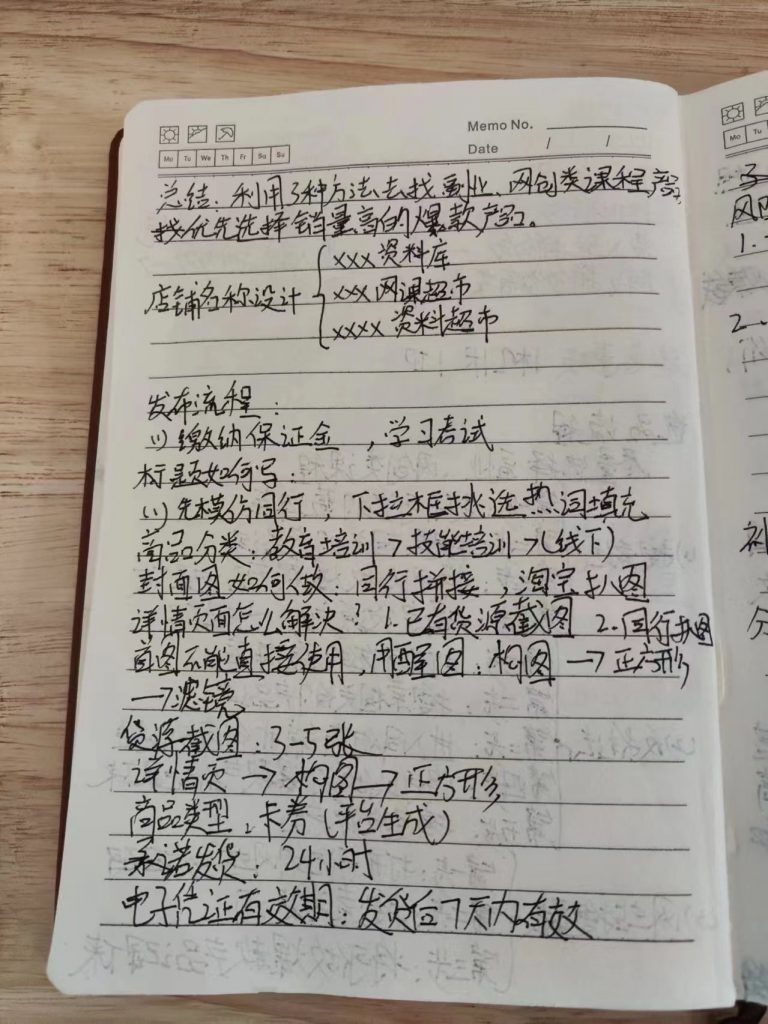 Memo No.
Date / /
Mo Tu We Th Fr Sa Su
总结:利用3种方法去找副业、网创类课程,产品
找优先选择销量高的爆款产品。
店铺名称设计
xxx资料库
xxx网课超市
xxxx资料超市
发布流程:
(1)缴纳保证金,学习考试
标题如何写:
(1)先模仿同行,下拉框挑选热词填充
商品分类:教育培训>技能培训>(线下)
封面图如何做:同行拼接,淘宝扒图
详情页面怎么解决?1.已有货源截图 2.同行扒图
首图不能直接使用,用醒图:构图→正方形
→滤镜
货源截图:3-5张
详情页→构图→正方形
商品类型:卡券(平台生成)
承诺发货:24小时
电子凭证有效期:发货后7天内有效
Mo Tu
1.
2.